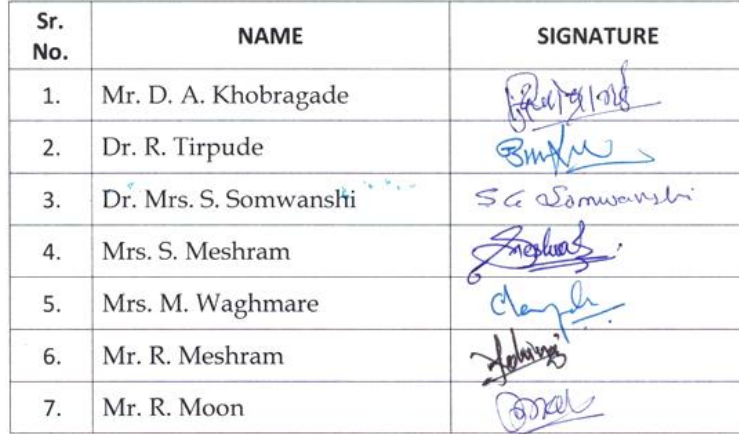 Sr. No. NAME SIGNATURE
1. Mr. D. A. Khobragade
2. Dr. R. Tirpude
3. Dr. Mrs. S. Somwanshi S G Somwanshi
4. Mrs. S. Meshram
5. Mrs. M. Waghmare
6. Mr. R. Meshram
7. Mr. R. Moon